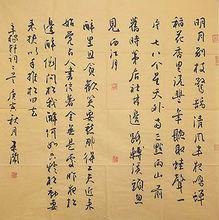 明月別枝驚鵲清風半夜鳴蟬
稻花香里說豐年聽取蛙聲一
片七八个星天外兩三點雨山前
舊時茅店社林邊路轉溪頭忽
見西江月
醉里且貪歡笑要愁那得工夫近來
始覺古人書信著全無是處昨夜松
邊醉倒問松我醉何如只疑松動要
來扶以手推松曰去
辛稼軒詞二首庚寅秋月